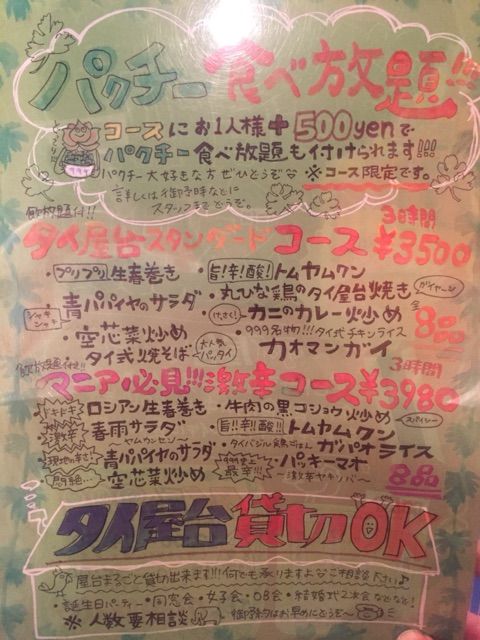 パクチー食べ放題!!!
コースにお1人様+500yenで
パクチー食べ放題も付けられます!!!
パクチー大好きな方ぜひどうぞ
※コース限定です。
詳しくは御予約などに
スタッフまでどうぞ。
飲み放題付!!
3時間
タイ屋台スタンダードコース ¥3500
・プリプリ生春巻き
・旨!辛!酸!トムヤムクン
シャキシャキ
・青パパイヤのサラダ
・丸ひな鶏のタイ屋台焼き
ガイヤーン
・空芯菜炒め
・カニのカレー炒め
全8品
・タイ式焼そば
大人気パッタイ
999名物!!!タイ式チキンライス
・カオマンガイ
飲み放題付!!
3時間
マニア必見!!!激辛コース¥3980
ドキドキ
・ロシアン生春巻き
・牛肉の黒コショウ炒め
スパイシー
激辛
・春雨サラダ
〜ヤムウンセン〜
・旨!!辛!!酸!!トムヤムクン
現地の辛さ!
・青パパイヤのサラダ
・タイバジル鶏ごはん ガパオライス
悶絶…
・空芯菜炒め
最辛!!!
・パッキーマオ
〜激辛ヤキソバ〜
8品
タイ屋台貸切OK
屋台まるごと貸切出来ます!!!何でも承りますよ ご相談下さい♪
・誕生日パーティー・同窓会・女子会・OB会・結婚式2次会などなど!
※人数要相談
御予約はお早めにどうぞ〜